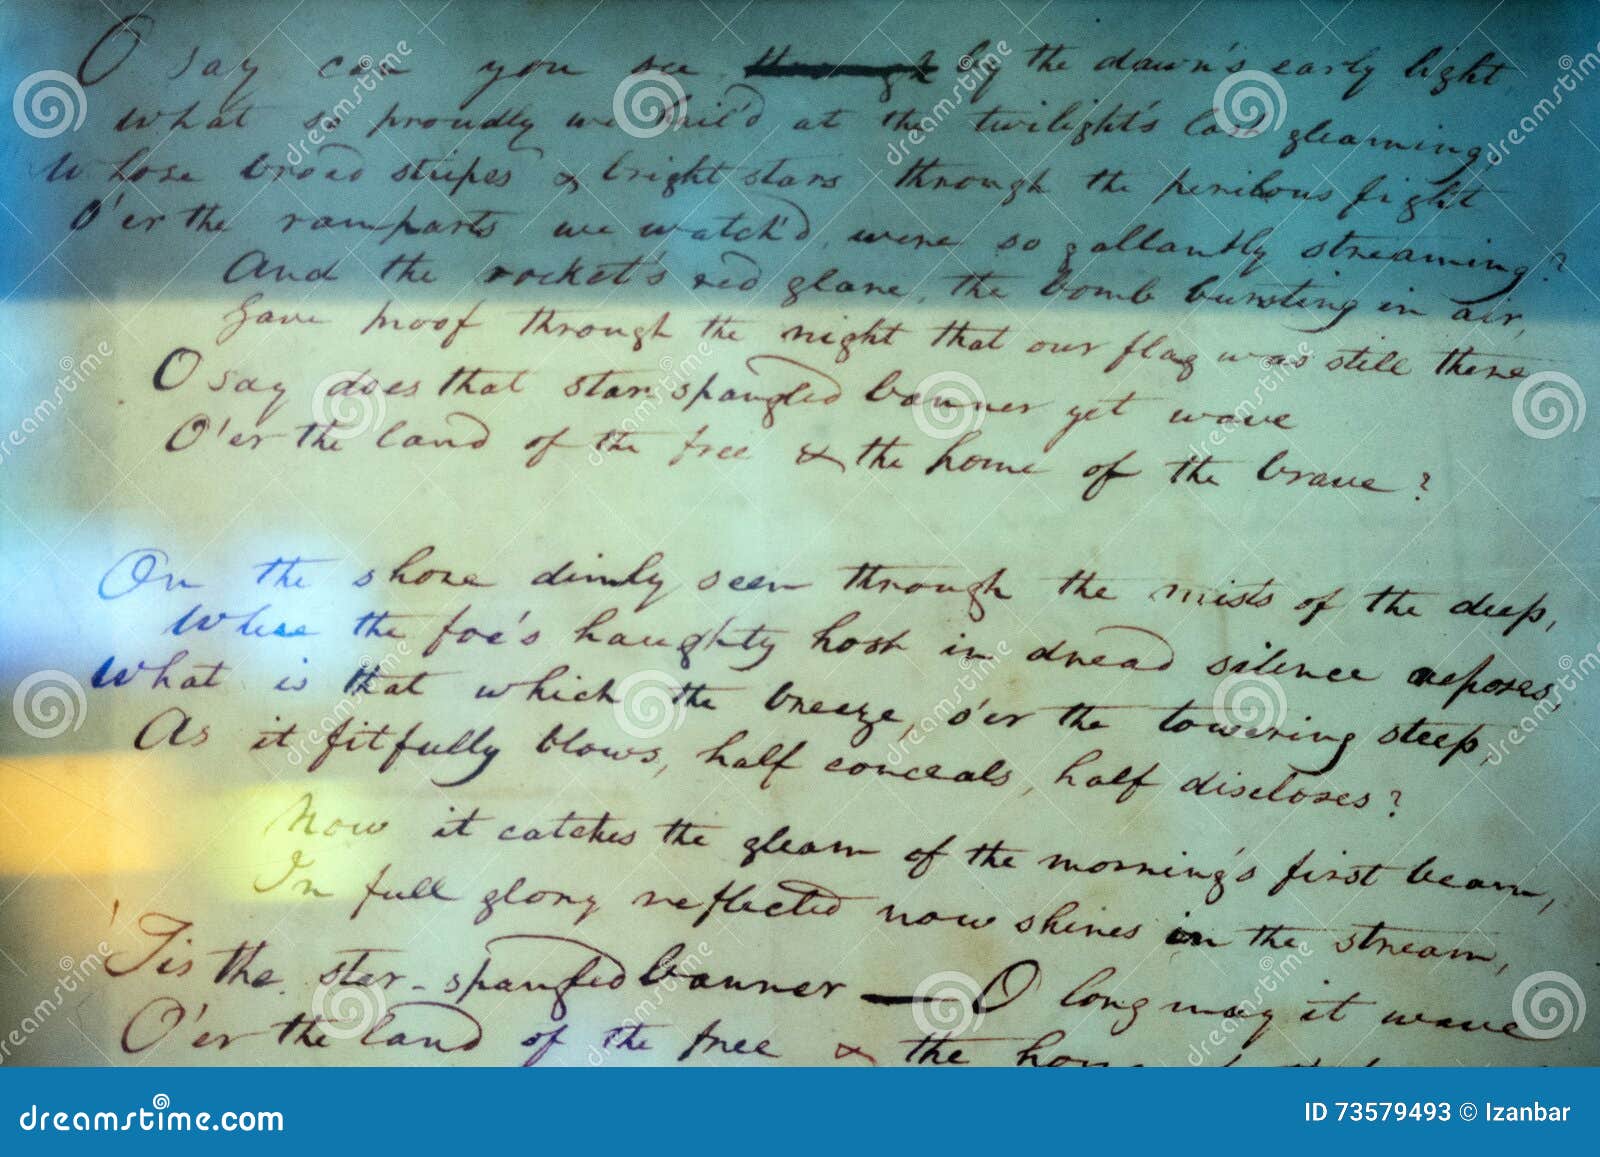 O say can you see through by the dawn's early light,
What so proudly we hail'd at the twilight's last gleaming,
Whose broad stripes & bright stars through the perilous fight
O'er the ramparts we watch'd, were so gallantly streaming?
And the rocket's red glare, the bomb bursting in air,
Gave proof through the night that our flag was still there
O say does that star spangled banner yet wave
O'er the land of the free & the home of the brave?
On the shore dimly seen through the mists of the deep,
Where the foe's haughty host in dread silence reposes,
What is that which the breeze, o'er the towering steep,
As it fitfully blows, half conceals, half discloses?
Now it catches the gleam of the morning's first beam,
In full glory reflected now shines in the stream,
'Tis the star-spangled banner — O long may it wave
O'er the land of the free & the
dreamstime.com
ID 73579493 © Izanbar